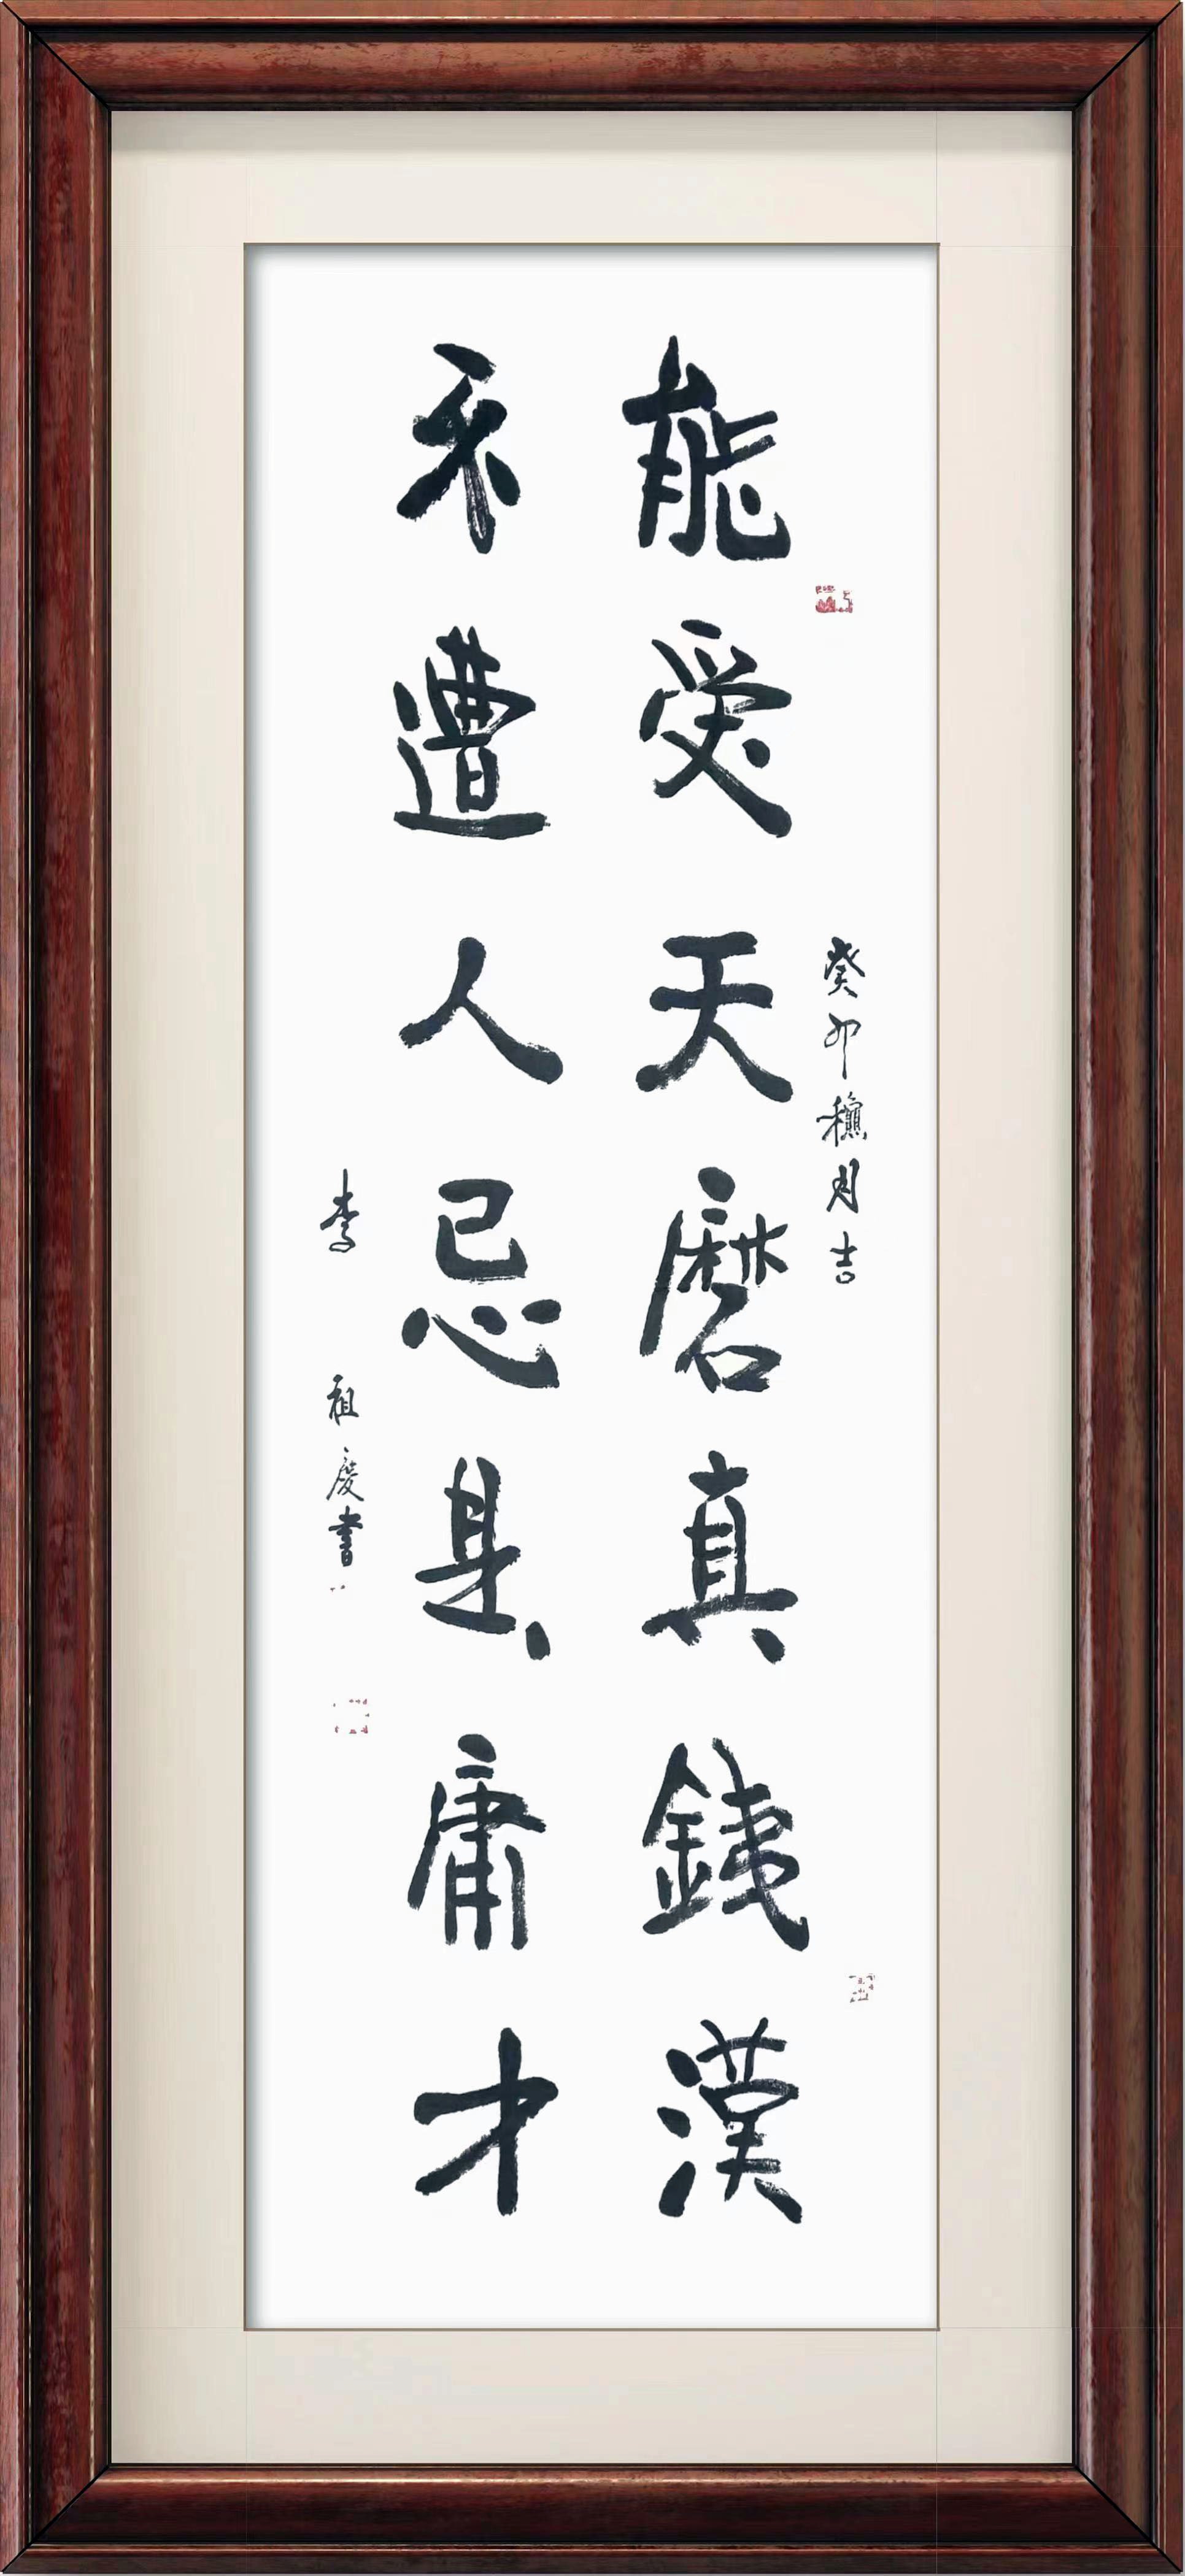 癸卯龝月吉
能受天磨真銕漢
不遭人忌是庸才
李祖慶書